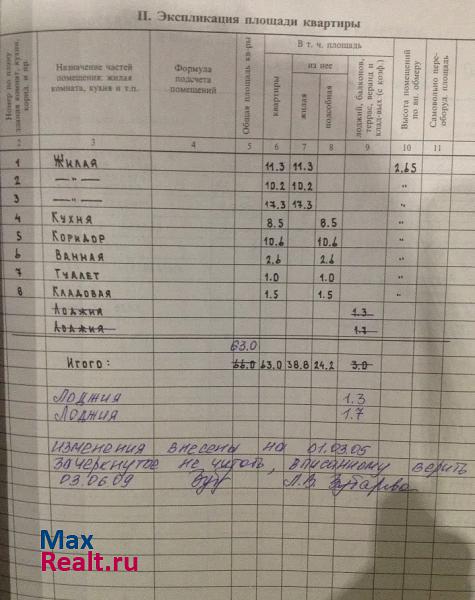 II. Экспликация площади квартиры
Номер по плану здания комнат, кухни, корид. и пр.
Назначение частей помещения: жилая комната, кухня и т.п.
Формула подсчета помещений
Общая площадь кв-ры
В т. ч. площадь
квартиры
из нее
жилая
подсобная
лоджий, балконов, террас, веранд и клад-вых (с коэф.)
Высота помещений по вн. обмеру
Самовольно пере-оборуд. площадь
2 3 4 5 6 7 8 9 10 11
1 Жилая 11.3 11.3 2.65
2 —"— 10.2 10.2 "
3 —"— 17.3 17.3 "
4 Кухня 8.5 8.5 "
5 Коридор 10.6 10.6 "
6 Ванная 2.6 2.6 "
7 Туалет 1.0 1.0 "
8 Кладовая 1.5 1.5 "
Лоджия 1.3
Лоджия 1.7
63.0
Итого: 66.0 63.0 38.8 24.2 3.0
Лоджия 1.3
Лоджия 1.7
Изменения внесены на 01.03.05
Зачеркнутое не читать, вписанному верить
03.06.09 Л.В.
Max
Realt.ru